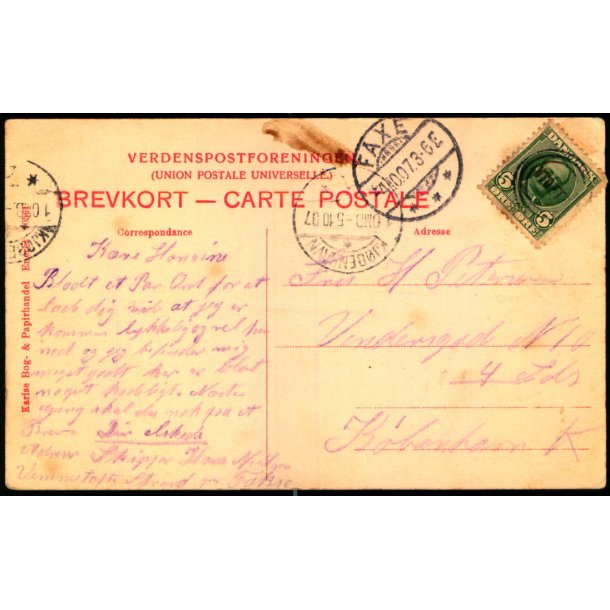 VERDENSPOSTFORENINGEN
(UNION POSTALE UNIVERSELLE.)
BREVKORT — CARTE POSTALE
Correspondance
Adresse
Karise Bog- & Papirhandel
FAXE
3-6E
KJØBENHAVN
1.OMB. 5.10.07
DANMARK
5 5
Kære
Blodt et Par Ord for at
lade dig vide at jeg er
kommen lykkelig og vel her
ned og jeg befinder mig
meget godt her er blot
noget kedeligt. Næste
gang skal du nok faa et
Brev. Din elskede
Adress Skipper Hans Nielsen
Vemmetofte Strand pr Fakse
H Petersen
Vendersgad N
4 Sds
København K